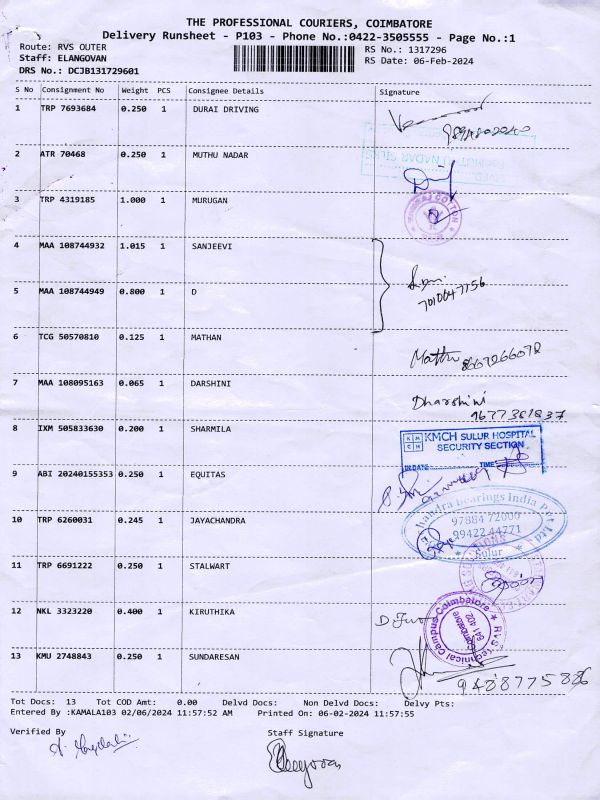 THE PROFESSIONAL COURIERS, COIMBATORE
Delivery Runsheet - P103 - Phone No.:0422-3505555 - Page No.:1
Route: RVS OUTER RS No.: 1317296
Staff: ELANGOVAN RS Date: 06-Feb-2024
DRS No.: DCJB131729601
S No Consignment No Weight PCS Consignee Details Signature
1 TRP 7693684 0.250 1 DURAI DRIVING
2 ATR 70468 0.250 1 MUTHU NADAR
3 TRP 4319185 1.000 1 MURUGAN
4 MAA 108744932 1.015 1 SANJEEVI
5 MAA 108744949 0.800 1 D
7010647756
6 TCG 50570810 0.125 1 MATHAN
Mathu 8667266078
7 MAA 108095163 0.065 1 DARSHINI
Dharshini
9677381837
8 IXM 505833630 0.200 1 SHARMILA
KMCH SULUR HOSPITAL
SECURITY SECTION
IN DATE TIME
9 ABI 20240155353 0.250 1 EQUITAS
10 TRP 6260031 0.245 1 JAYACHANDRA
Bearings India Pvt Ltd
97884 72000
99422 44771
Sulur
11 TRP 6691222 0.250 1 STALWART
12 NKL 3323220 0.400 1 KIRUTHIKA
RVS Technical Campus-Coimbatore
Coimbatore
641 402
13 KMU 2748843 0.250 1 SUNDARESAN
9488775886
Tot Docs: 13 Tot COD Amt: 0.00 Delvd Docs: Non Delvd Docs: Delvy Pts:
Entered By :KAMALA103 02/06/2024 11:57:52 AM Printed On: 06-02-2024 11:57:55
Verified By Staff Signature